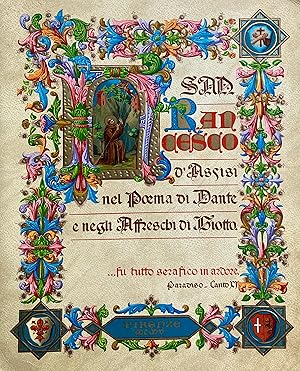 SAN
FRAN
CESCO
d'Assisi
nel Poema di Dante
e negli Affreschi di Giotto.
...fu tutto serafico in ardore.
Paradiso - Canto XI
FIRENZE